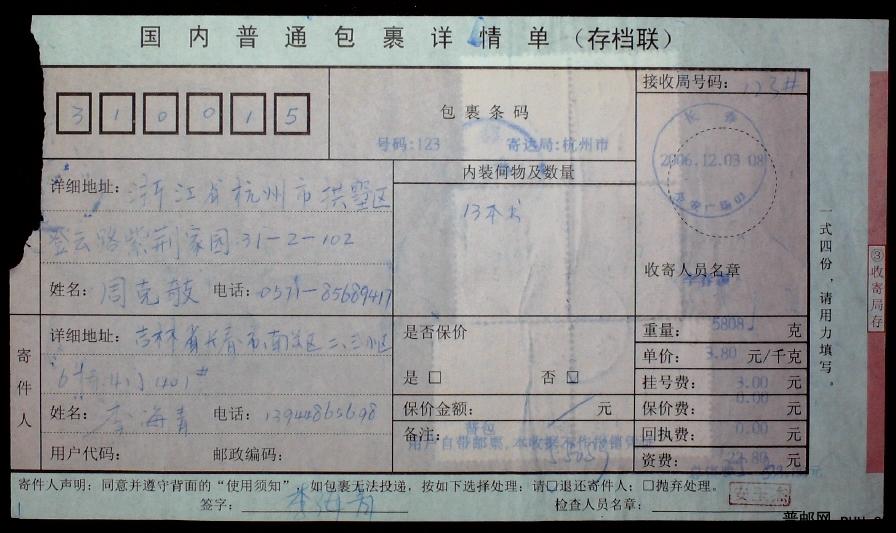 国内普通包裹详情单（存档联）
接收局号码：123#
310015
包裹条码
号码:123 寄达局:杭州市
长春
2006.12.03 08
详细地址：浙江省杭州市拱墅区
登云路紫荆家园31-2-102
姓名：周克敏 电话：0571-85689417
内装何物及数量
13本书
收寄人员名章
寄件人
详细地址：吉林省长春市南关区
401#
姓名：李海青 电话：13944865698
用户代码： 邮政编码：
是否保价
是□ 否☑
保价金额： 元
备注：
用户自带邮票,本收据不作报销凭证
重量：5808 克
单价：3.80 元/千克
挂号费：3.00 元
保价费：0.00 元
回执费：0.00 元
资费：22.80 元
一式四份，请用力填写。
③收寄局存
寄件人声明：同意并遵守背面的“使用须知”，如包裹无法投递，按如下选择处理：请□退还寄件人；□抛弃处理。
签字：李海青 检查人员名章：
普邮网